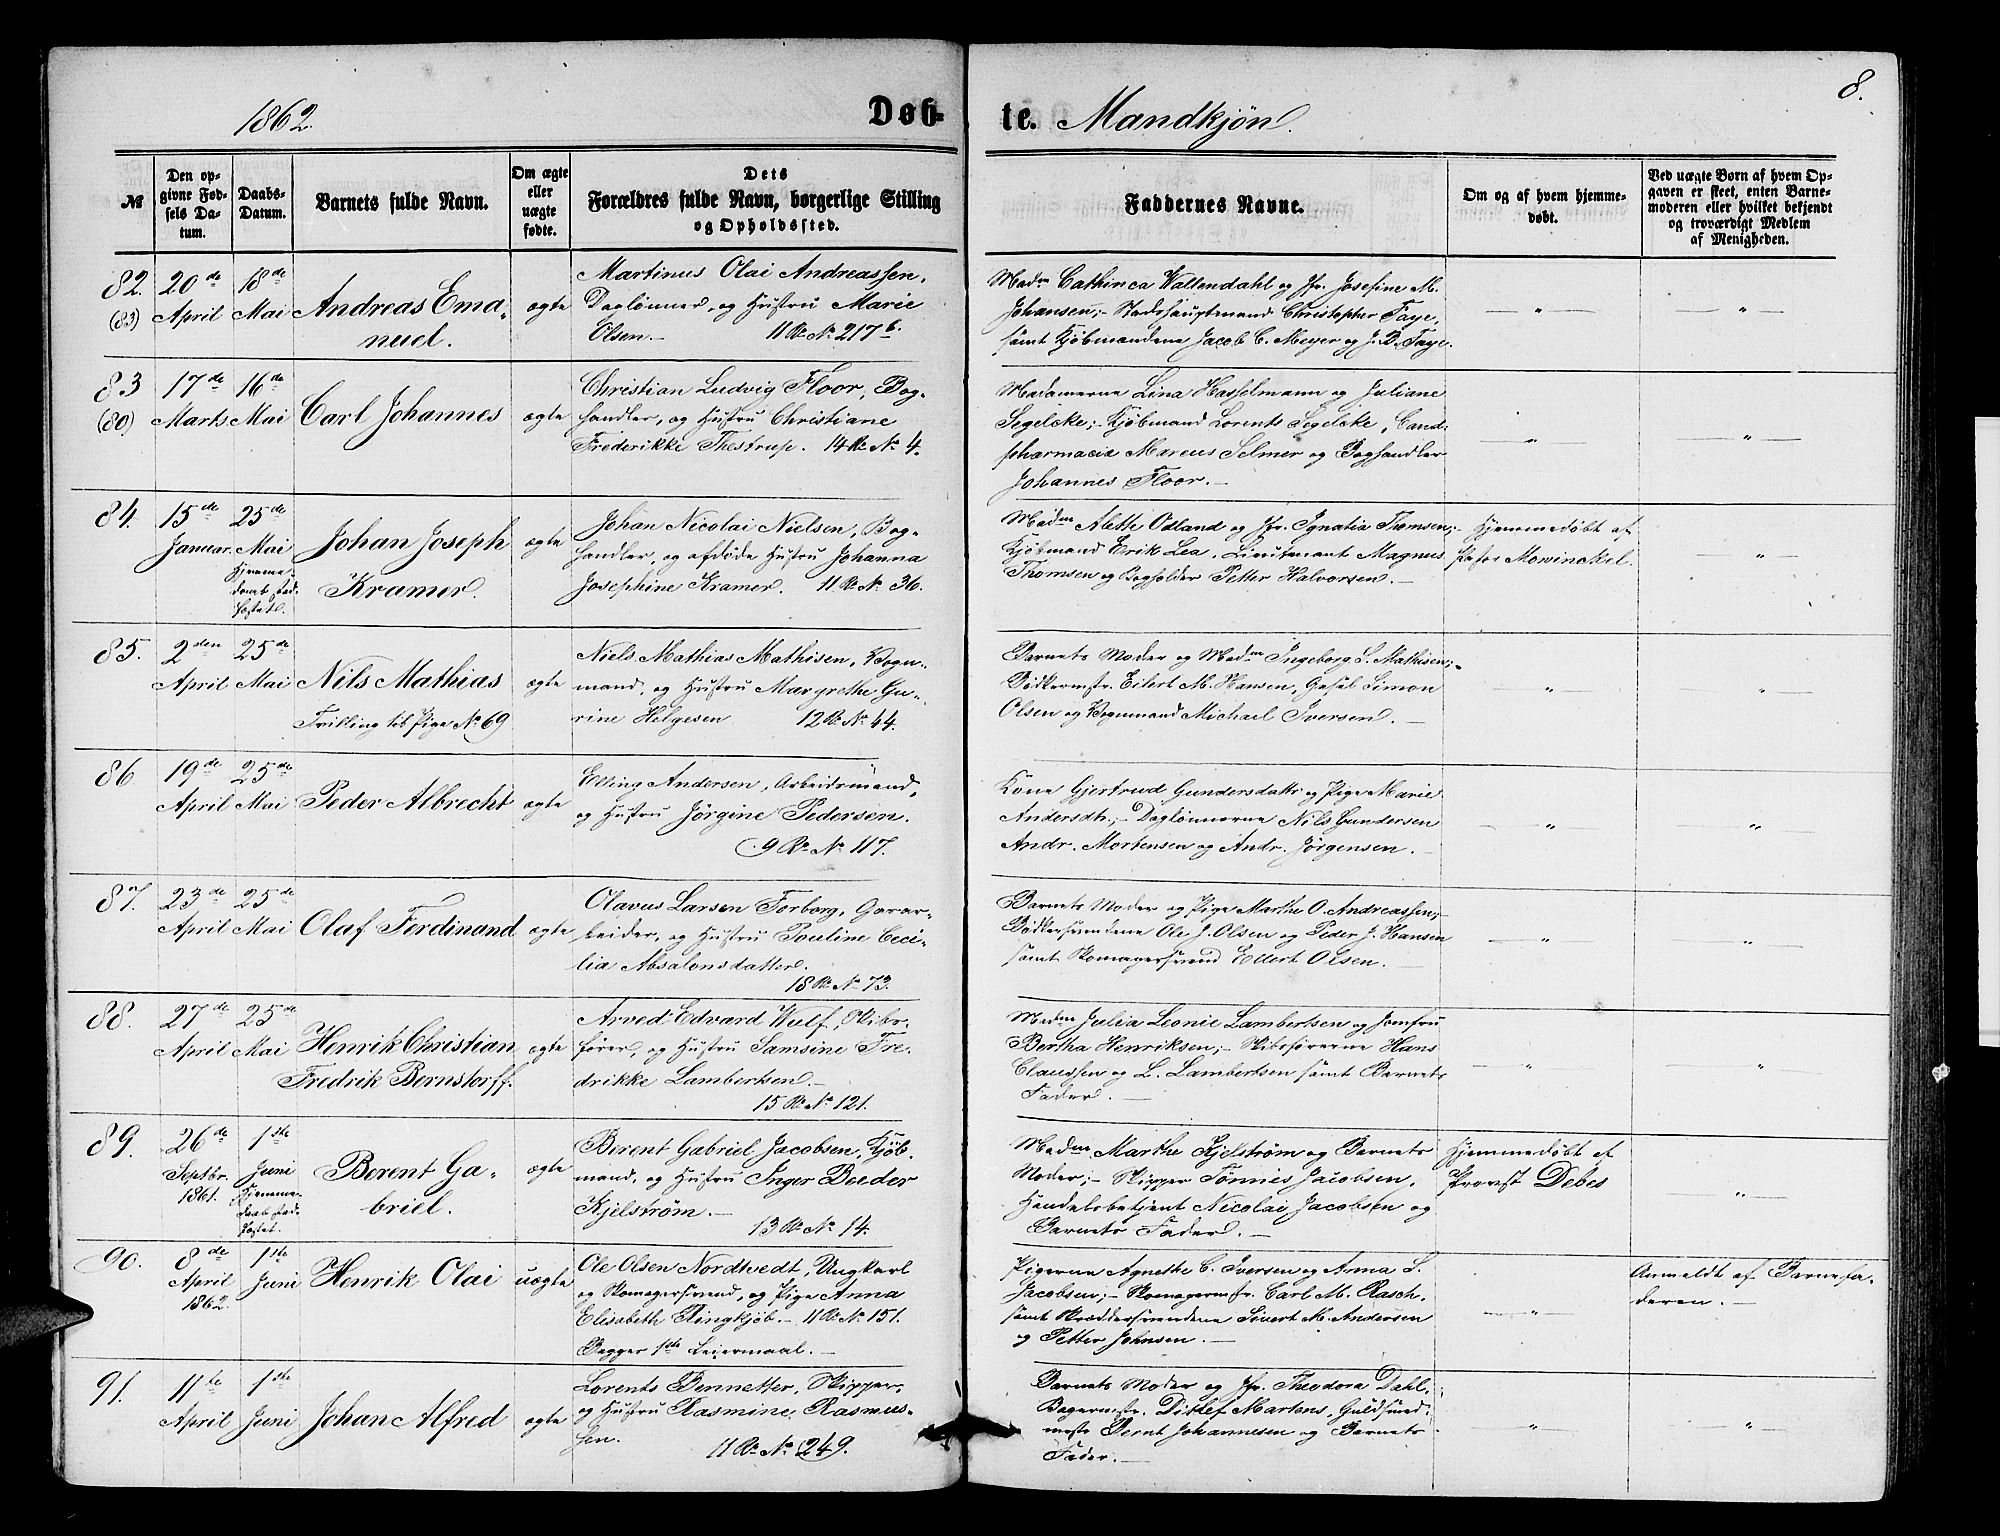 1862.
Døb-
te. Mandkjön.
8.
№
Den op-
givne Fød-
sels Da-
tum.
Daabs-
Datum.
Barnets fulde Navn.
Om ægte
eller
uægte
fødte.
Dets
Forældres fulde Navn, borgerlige Stilling
og Opholdssted.
Faddernes Navne.
Om og af hvem hjemme-
døbt.
Ved uægte Børn af hvem Op-
gaven er skeet, enten Barne-
moderen eller hvilket bekjendt
og troværdigt Medlem
af Menigheden.
82.
(83)
20de
April
18de
Mai
Andreas Ema-
nuel.
ægte
Martinus Olai Andreassen,
Daglönner, og Hustru Marie
Olsen. 11 Rs No 217b.
Madm Cathinca Wallendahl og Jfr. Josefine M.
Johansen; Stadshauptmand Christopher Faye,
samt Kjöbmændene Jacob C. Meyer og J. B. Faye.
83
(80)
17de
Marts
16de
Mai
Carl Johannes
ægte
Christian Ludvig Floor, Bog-
handler, og Hustru Christiane
Frederikke Thestrup. 14 Rs No 4.
Madamerne Lina Hasselmann og Juliane
Segelcke; Kjöbmand Lorents Segelcke, Cand.
pharmacia Marcus Selmer og Boghandler
Johannes Floor.
84.
15de
Januar.
25de
Mai
Hjemme-
daab stad-
fæstet.
Johan Joseph
Kramer.
ægte
Johan Nicolai Nielsen, Bog-
handler, og afdöde Hustru Johanna
Josephine Kramer. 11 Rs No 36.
Madm Alette Odland og Jfr. Ignatia Thomsen;
Kjöbmand Erik Lea, Lieutenant Magnus
Thomsen og Bogholder Petter Halvorsen.
Hjemmedöbt af
Pastor Mowinckel.
85.
2den
April
25de
Mai
Nils Mathias
Tvilling til Pige No 69
ægte
Niels Mathias Mathisen, Vogn-
mand, og Hustru Margrethe Gu-
rine Helgesen 12 Rs No 44.
Barnets Moder og Madm Ingeborg S. Mathisen;
Bödkermstr. Eilert M. Hansen, Simon
Olsen og Vognmand Michael Iversen.
86
19de
April
25de
Mai
Peder Albrecht
ægte
Elling Andersen, Arbeidsmand,
og Hustru Jørgine Pedersen.
9 Rs No 117.
Kone Gjertrud Gundersdattr og Pige Marie
Andersdtr; Daglönnerne Nils Gundersen
Andr. Mortensen og Andr. Jørgensen.
87.
23de
April
25de
Mai
Olaf Ferdinand
ægte
Olavus Larsen Forborg, Garvar-
beider, og Hustru Pouline Ceci-
lia Absalonsdatter.
18 Rs No 73.
Barnets Moder og Pige Marthe O. Andreassen;
Bödkersvendene Ole J. Olsen og Peder J. Hansen
samt Skomagersvend Ellert Olsen.
88.
27de
April
25de
Mai
Henrik Christian
Fredrik Bernstorff.
ægte
Arved Edvard Wulf, Skibs-
förer, og Hustru Samsine Fre-
drikke Lambertsen.
15 Rs No 121.
Madm Julia Leonie Lambertsen og Jomfru
Bertha Henriksen; Skibsförerne Hans
Claussen og L. Lambertsen samt Barnets
Fader.
89.
26de
Septbr.
1861.
1ste
Juni
Hjemme-
daab stad-
fæstet.
Berent Ga-
briel.
ægte
Berent Gabriel Jacobsen, Kjöb-
mand, og Hustru Inger Beeder
Kjelström.
13 Rs No 14.
Madm Marthe Kjelström og Barnets
Moder; Skipper Tönnes Jacobsen,
Handelsbetjent Nicolai Jacobsen og
Barnets Fader.
Hjemmedöbt af
Provst Debes
90.
8de
April
1862.
1ste
Juni
Henrik Olai
uægte
Ole Olsen Nordtvedt, Ungkarl
og Skomagersvend, og Pige Anna
Elisabeth Ringkjöb. 11 Rs No 151.
Begges 1ste Leiermaal.
Pigerne Agnethe C. Iversen og Anna S.
Jacobsen; Skomagermstr. Carl M. Rasch.
samt Skræddersvendene Sivert M. Andersen
og Petter Johnsen.
Anmeldt af Barnefa-
deren.
91.
11te
April
1ste
Juni
Johan Alfred
ægte
Lorents Bennetter, Skipper,
og Hustru Rasmine Rasmus-
sen. 11 Rs No 249.
Barnets Moder og Jfr. Theodora Dahl,
Bagermstr. Ditlef Martens, Guldsmed-
mestr Bernt Johannesen og Barnets
Fader.